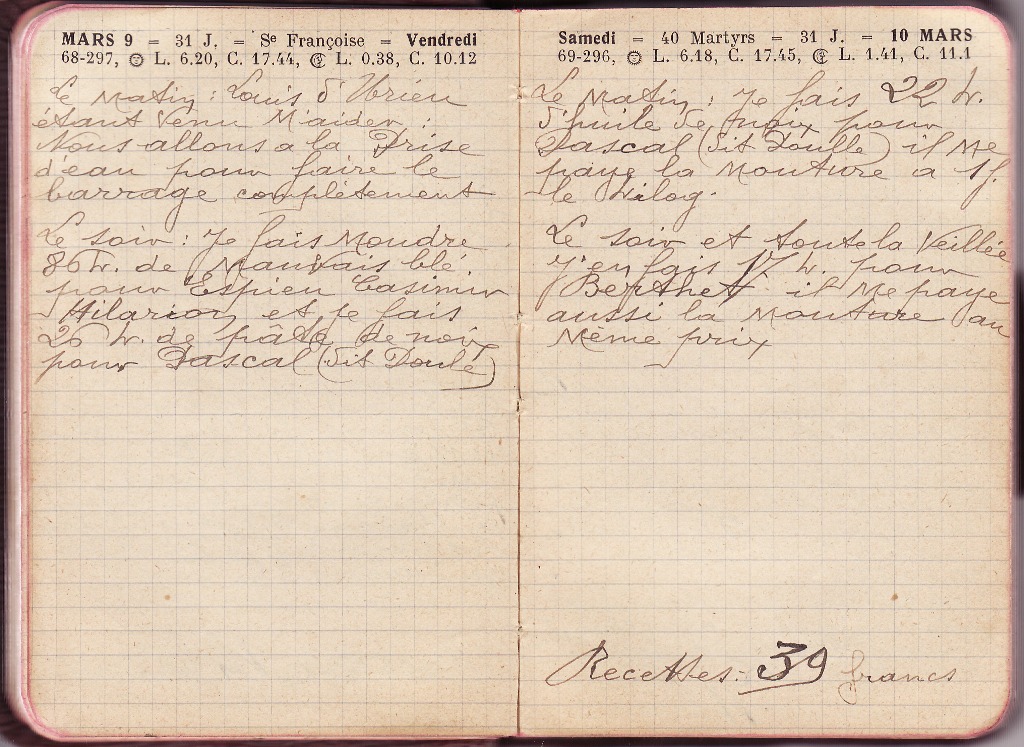 MARS 9 = 31 J. = Se Françoise = Vendredi
68-297, L. 6.20, C. 17.44, L. 0.38, C. 10.12
Le Matin : Louis d'Urieu
étant Venu M'aider :
Nous allons a la Prise
d'eau pour faire le
barrage complètement
Le soir : Je fais Moudre
86 k. de Mauvais blé
pour Espieu Casimir
Hilarion et je fais
26 k. de pâte de noix
pour Pascal (dit Doulé)
Samedi = 40 Martyrs = 31 J. = 10 MARS
69-296, L. 6.18, C. 17.45, L. 1.41, C. 11.1
Le Matin : Je fais 22 k.
d'huile de noix pour
Pascal (dit Doulle) il Me
paye la Mouture a 1f.
le kilog.
Le soir et toute la Veillée
j'en fais 17 k. pour
Berthet il Me paye
aussi la Mouture au
Même prix
Recettes : 39 francs